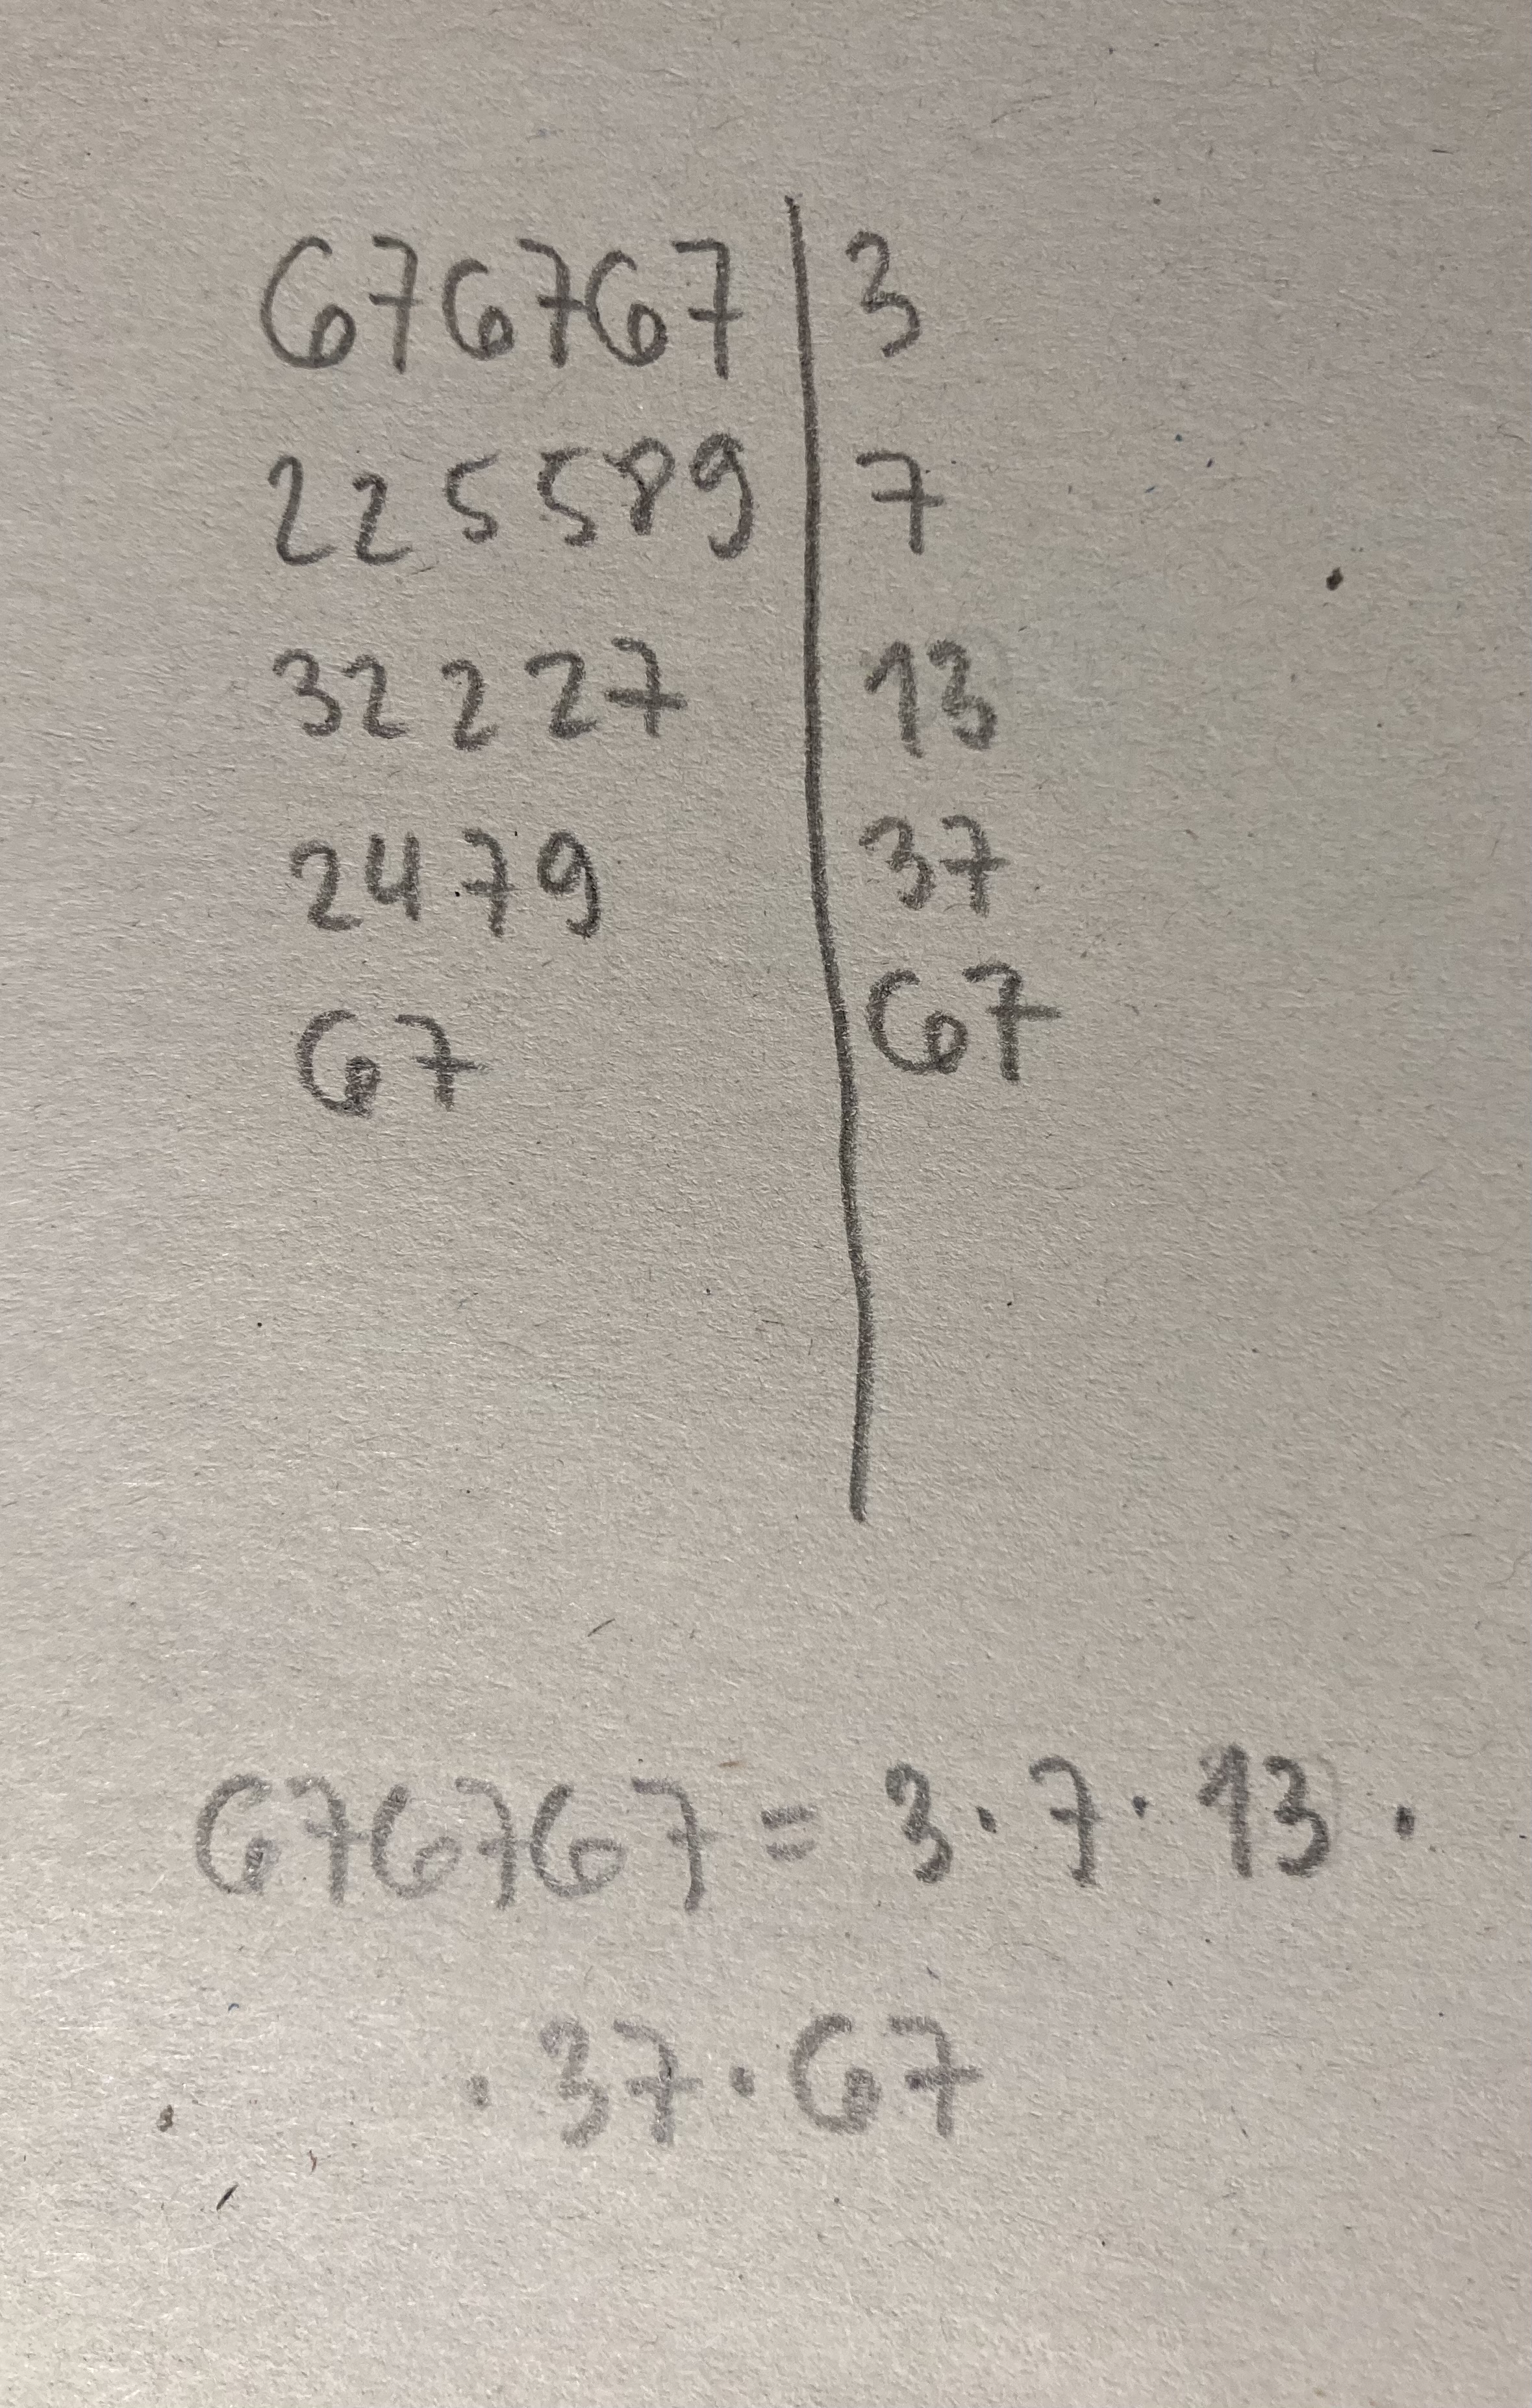 676767 | 3
225589 | 7
32227 | 13
2479 | 37
67 | 67
676767 = 3 · 7 · 13 ·
· 37 · 67